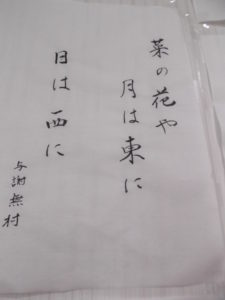 菜の花や
月は東に
日は西に
与謝無村